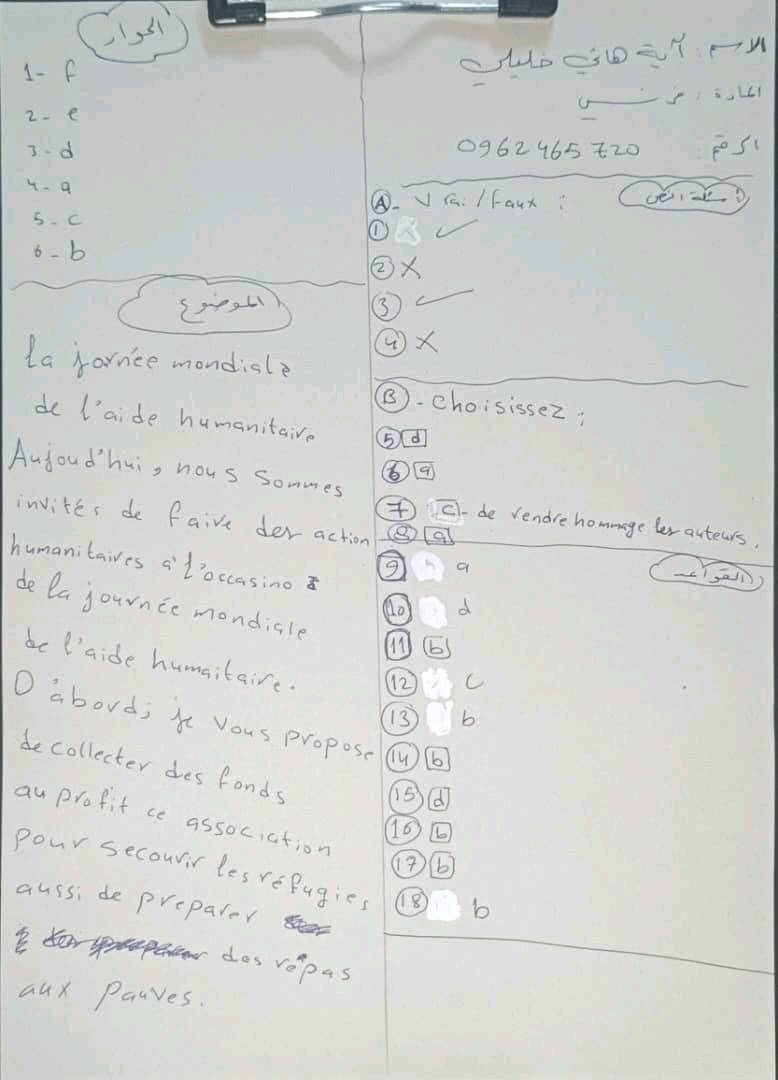 الاسم: آية هاني خليلي
المادة: فرنسي
الرقم: 0962465720
أسئلة النص
A- Vrai/Faux :
1 ✓
2 X
3 ✓
4 X
B- choisissez :
5 d
6 a
7 c - de rendre hommage les auteurs.
8 a
القواعد
9 a
10 d
11 b
12 c
13 b
14 b
15 d
16 b
17 b
18 b
الحوار
1- f
2- e
3- d
4- a
5- c
6- b
الموضوع
la jornée mondiale
de l'aide humanitaire
Aujoud'hui, nous sommes
invités de faire des action
humanitaires a l'occasino
de la journée mondiale
de l'aide humaitaire.
D'abord; je vous propose
de collecter des fonds
au profit ce association
pour secourir les réfugies
aussi de preparer
des repas
aux pauves.